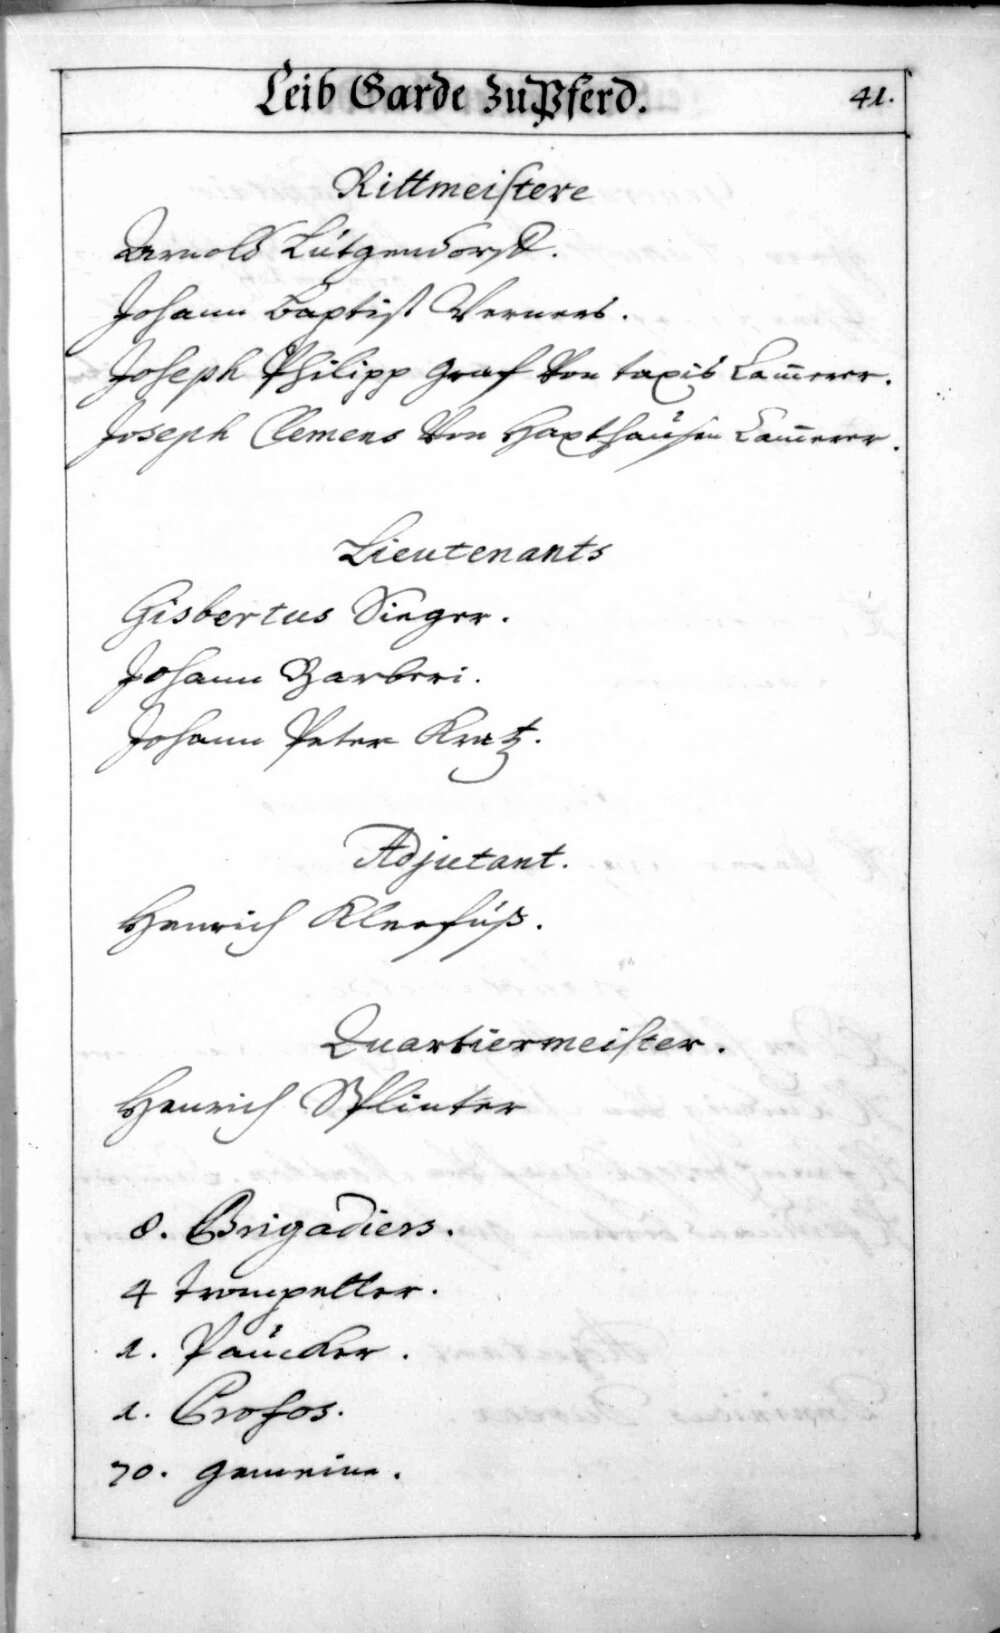 Leib Garde zu Pferd.
41.
Rittmeistere
Arnold Lütgendorff.
Johann Baptist Werners.
Joseph Philipp Graf Von taxis Cam̄erer.
Joseph Clemens Von Haxthaüsen Cam̄erer.
Lieutenants
Gisbertus Sieger.
Johann Barberi.
Johann Peter Kratz.
Adjutant.
Henrich Kleefüß.
Quartiermeister.
Henrich Splinter
8. Brigadiers.
4 trompetter.
1. Paücker.
1. Profos.
70. gemeine.